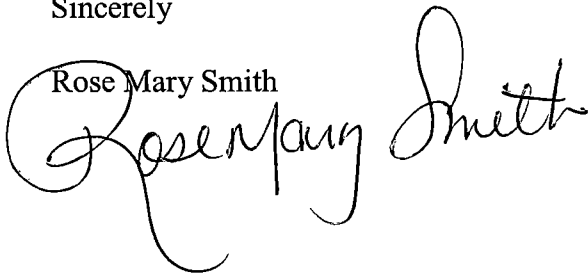 Sincerely
Rose Mary Smith
Rose Mary Smith